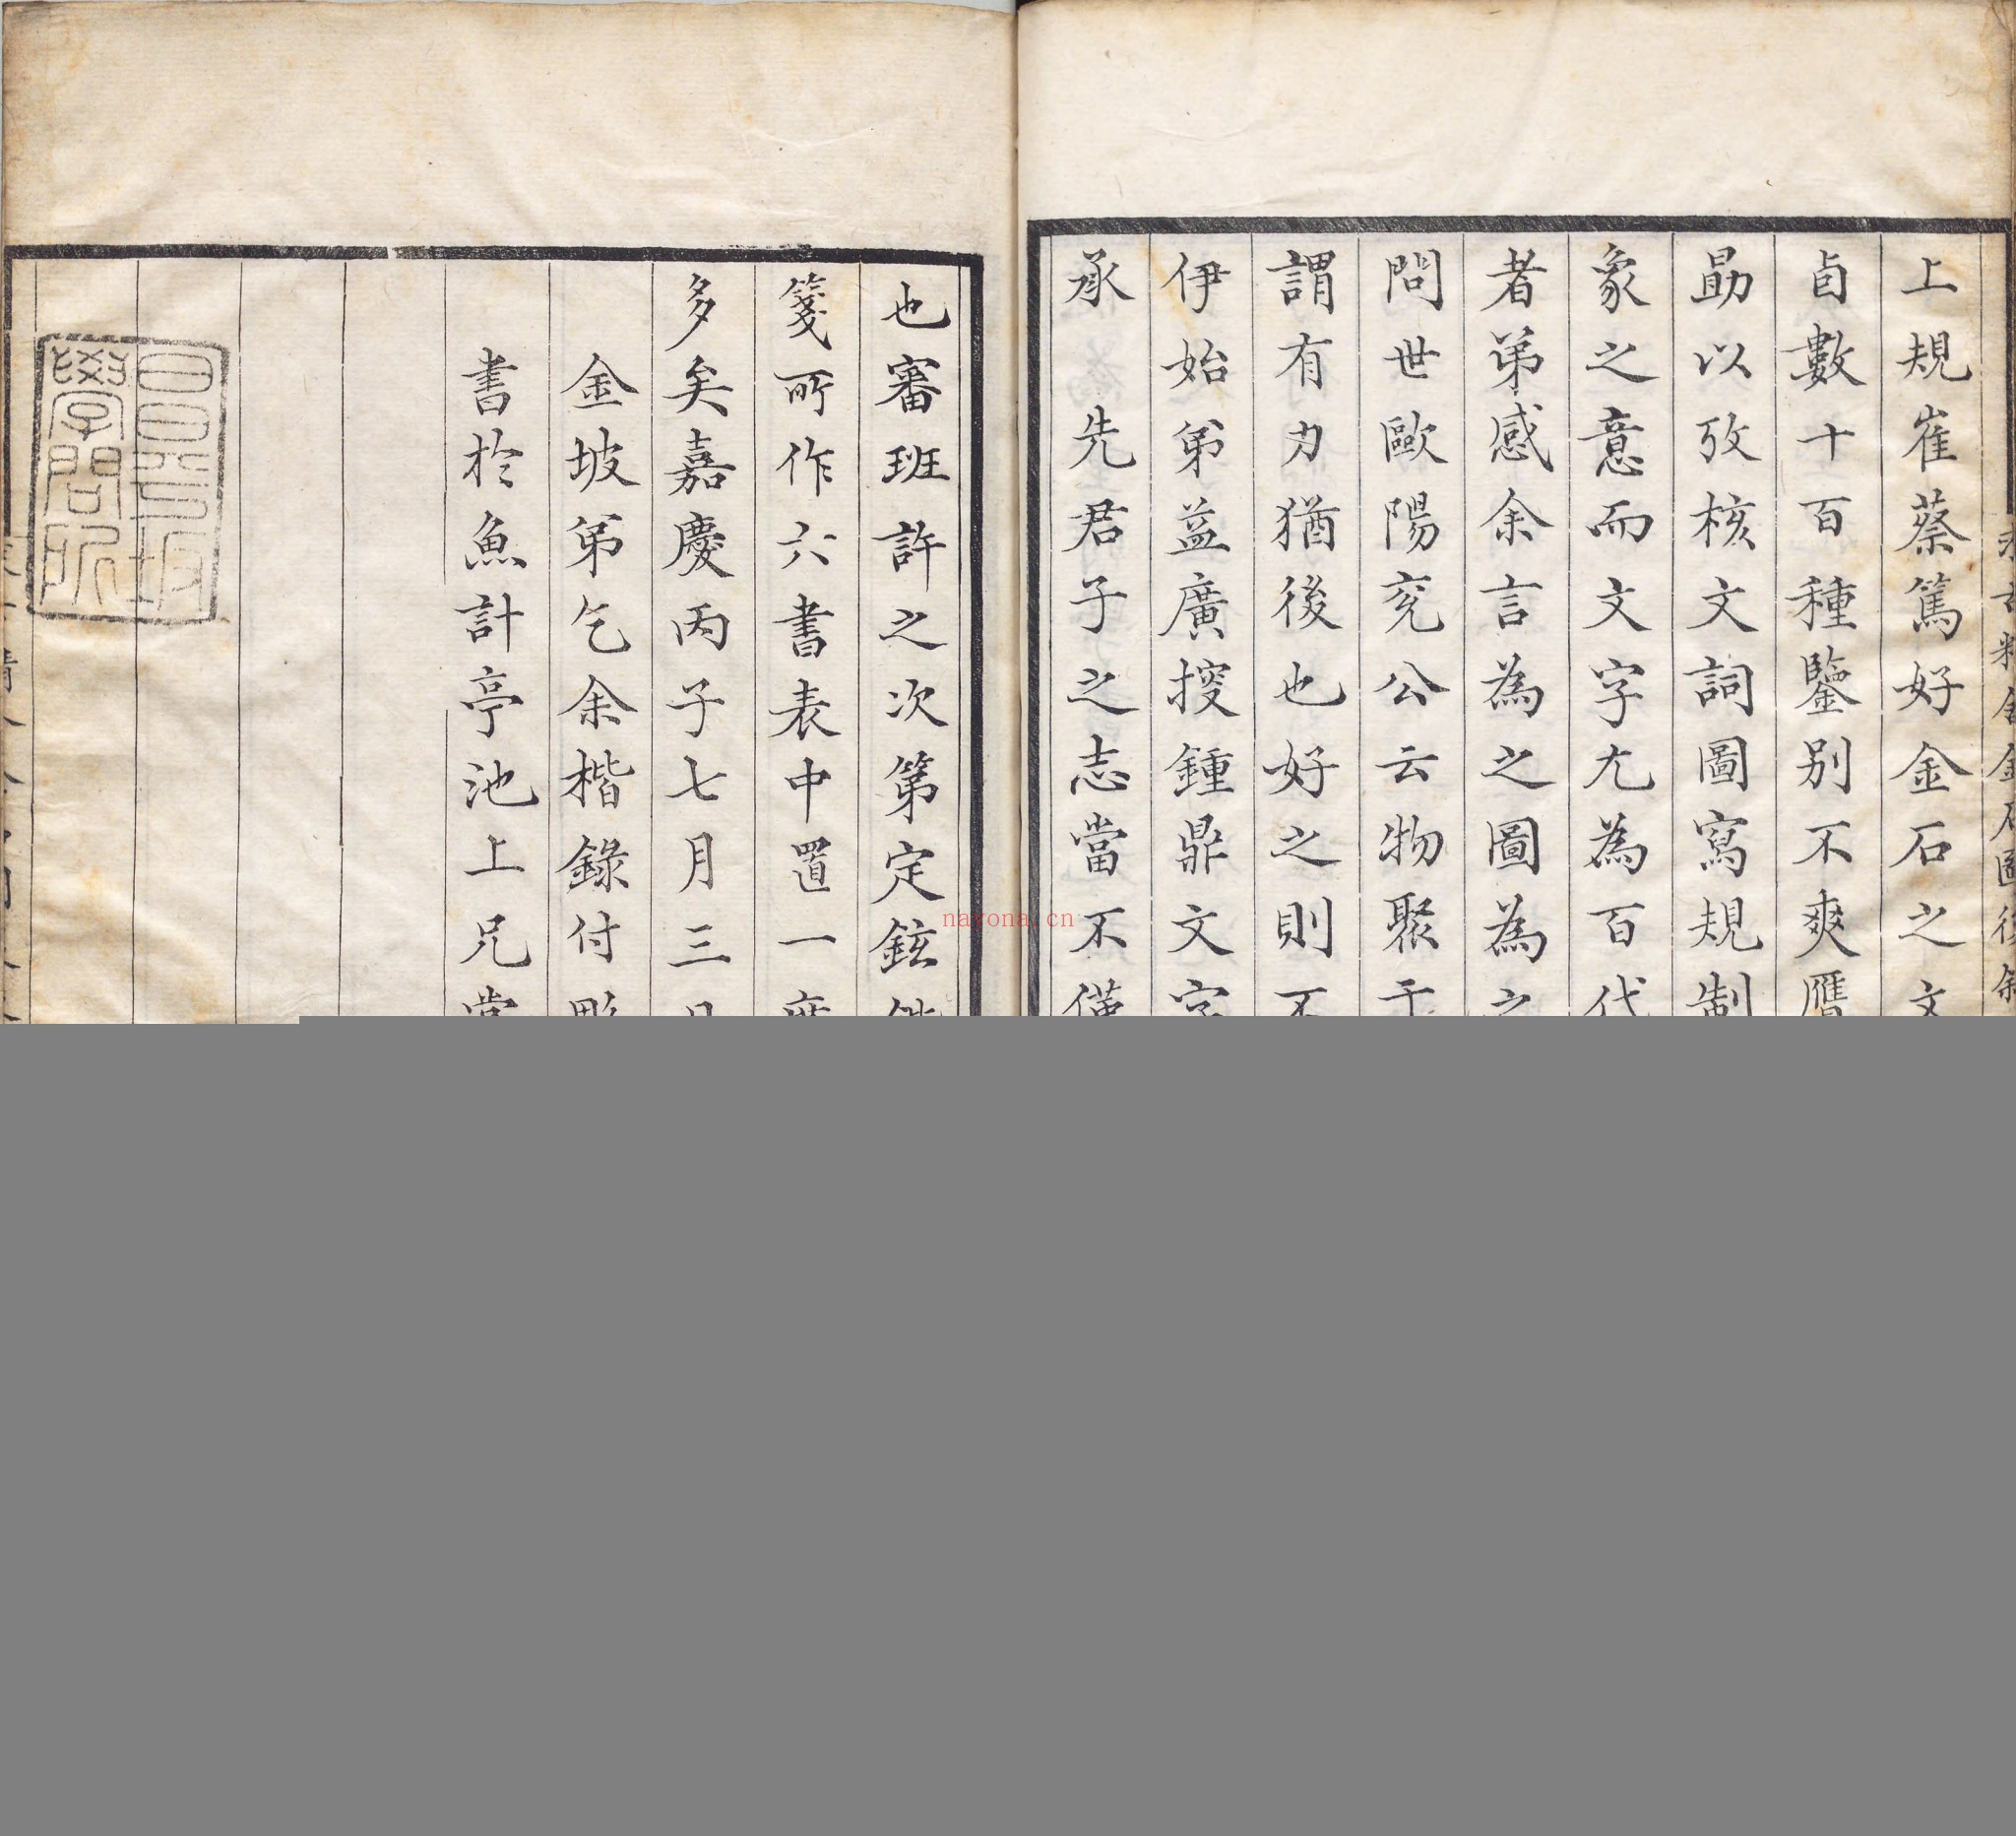 上規崔蔡篤好金石之文
卣數十百種鑒別不爽
勗以攷核文詞圖寫規制
象之意而文字尤為百代
者弟感余言為之圖為之
問世歐陽兖公云物聚于
謂有力猶後也好之則不
伊始弟益廣搜鍾鼎文字
承 先君子之志當不僅
也審班許之次第定鉉
箋所作六書表中置一
多矣嘉慶丙子七月三日
金坡弟乞余楷錄付
書於魚計亭池上兄
學問所
nayona.cn